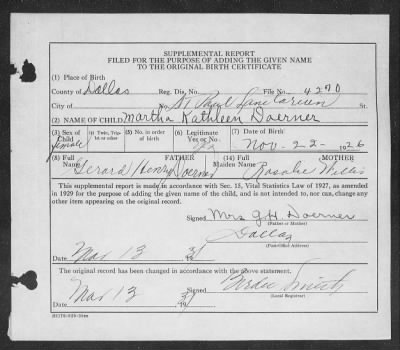 SUPPLEMENTAL REPORT
FILED FOR THE PURPOSE OF ADDING THE GIVEN NAME
TO THE ORIGINAL BIRTH CERTIFICATE
(1) Place of Birth
County of Dallas Reg. Dis. No. File No. 4270
City of No. St Paul Sanitarium St.
(2) NAME OF CHILD Martha Kathleen Doerner
(3) Sex of Child female (4) Twin, Triplet or other (5) No. in order of birth (6) Legitimate Yes or No? (7) DATE OF BIRTH Nov-22-1926
(8) Full Name FATHER Gerard Henry Doerner (14) Full Maiden Name MOTHER Rosalie Willis
This supplemental report is made in accordance with Sec. 15, Vital Statistics Law of 1927, as amended
in 1929 for the purpose of adding the given name of the child, and is not intended to, nor can, change any
other item appearing on the original record.
Signed Mrs G.H. Doerner
(Father or Mother)
Dallas
(Post-Office Address)
Date Mar 13 193
The original record has been changed in accordance with the above statement.
Date Mar 13 193 Signed Birdie Smith
(Local Registrar)